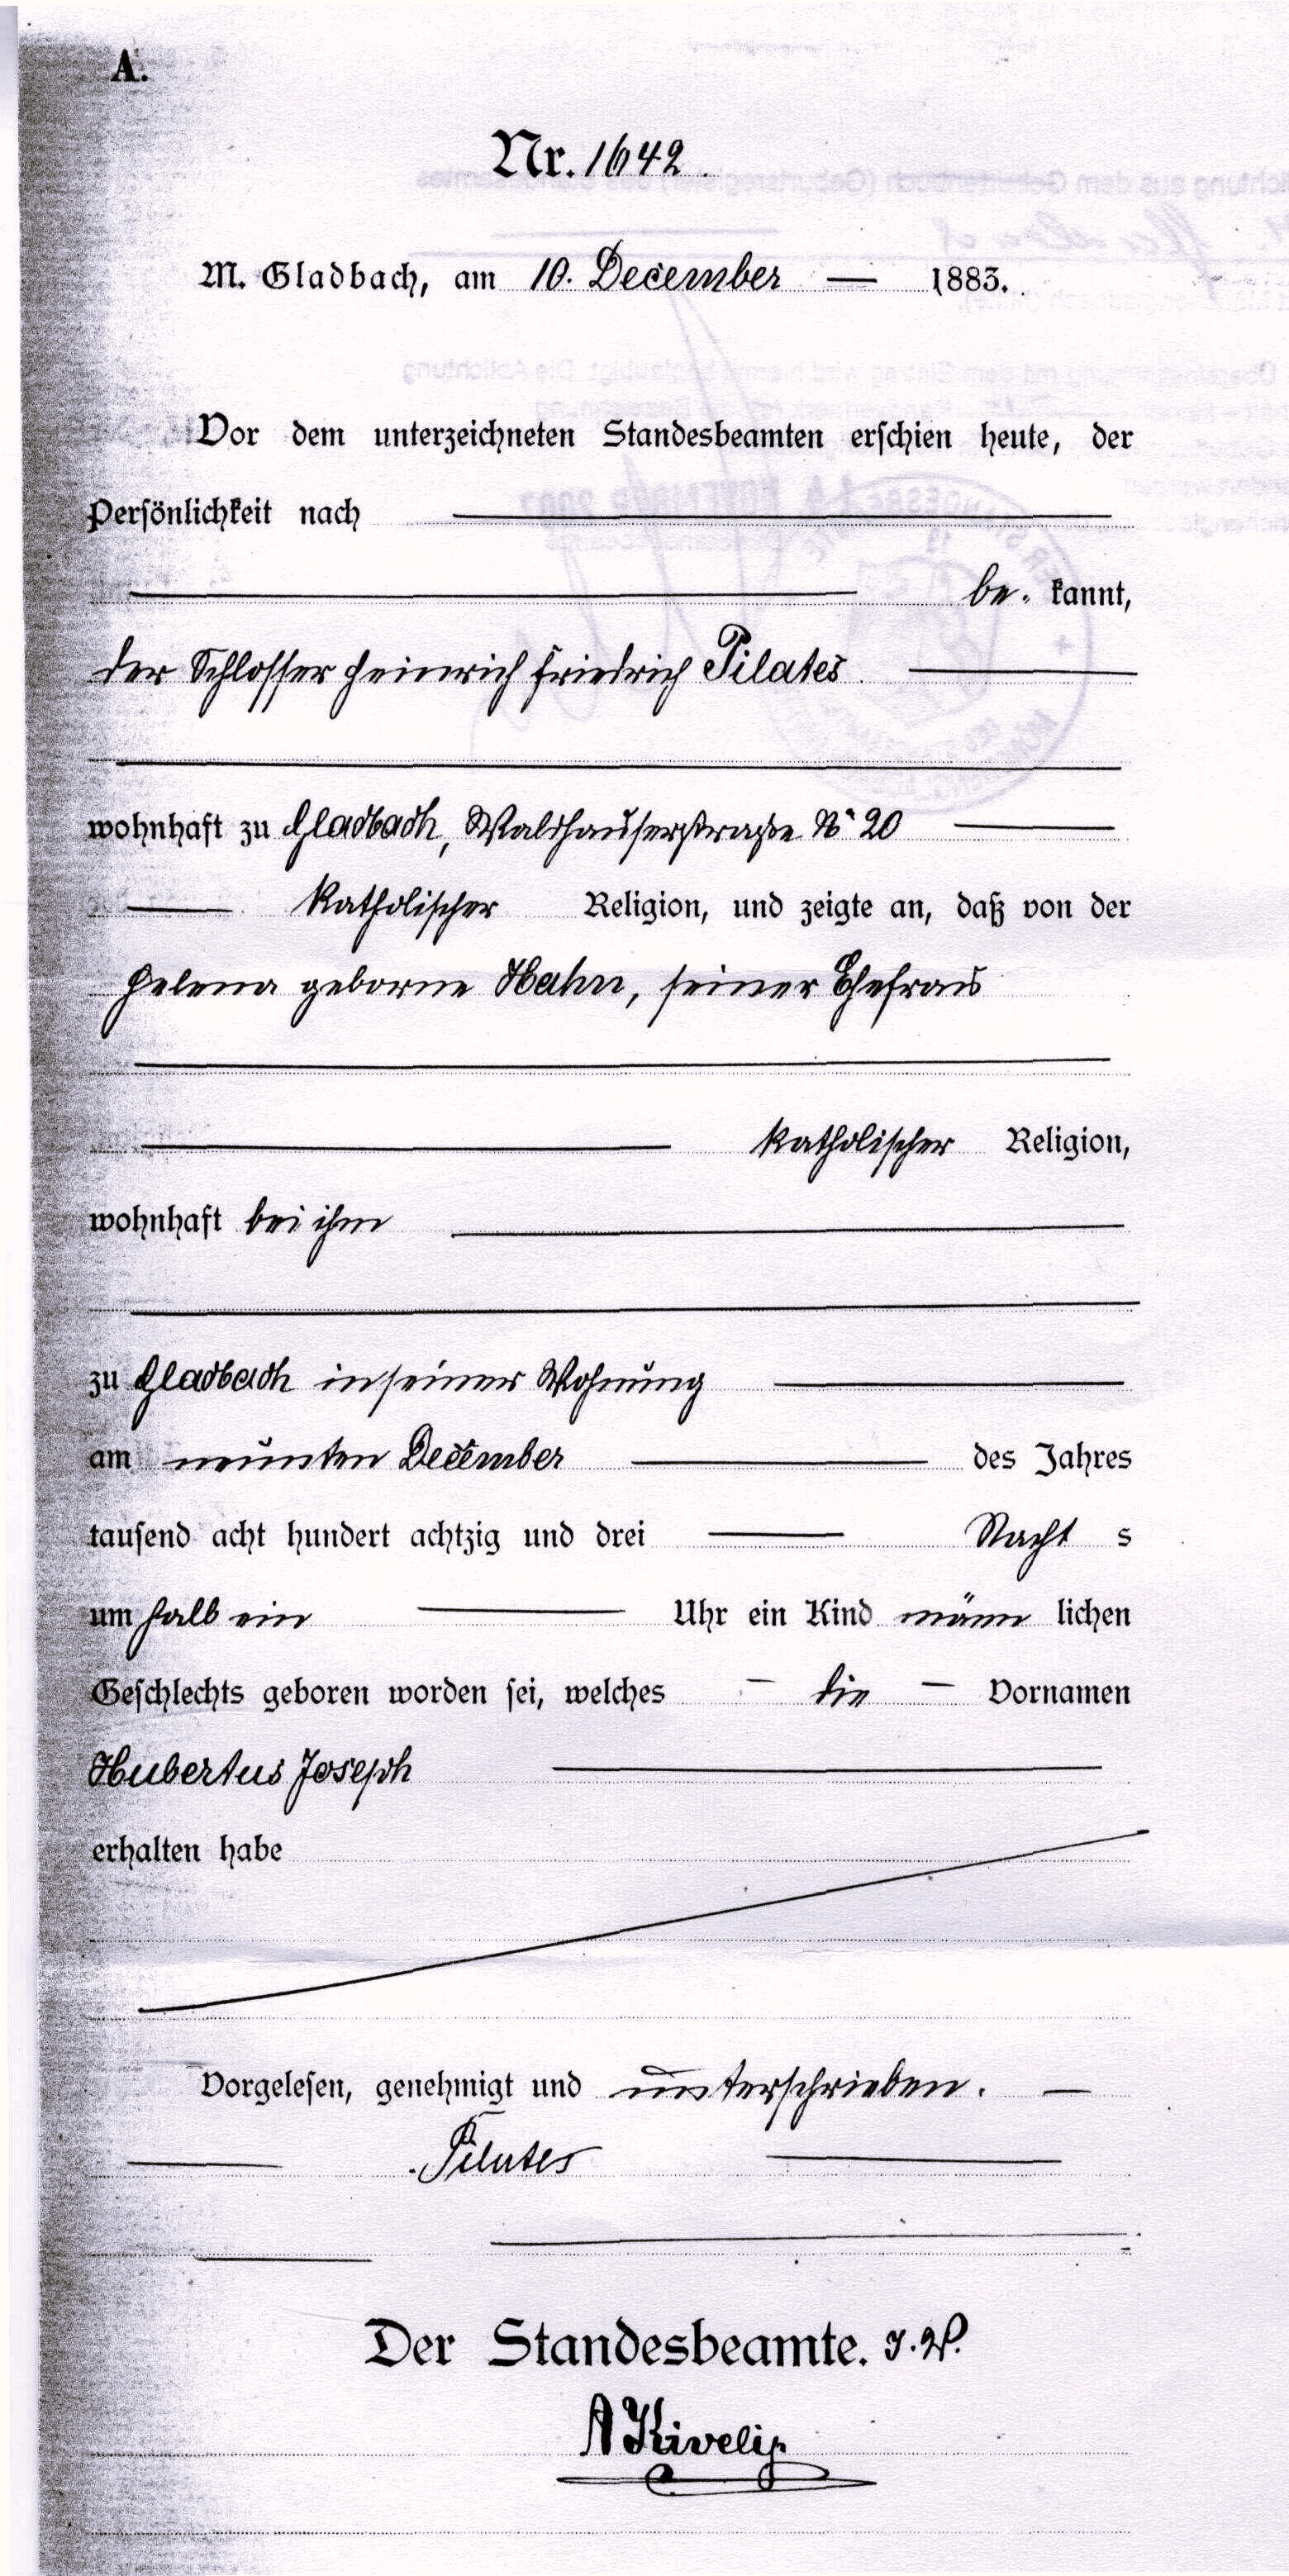 A.
Nr. 1642.
M. Gladbach, am 10. December 1883.
Vor dem unterzeichneten Standesbeamten erschien heute, der
Persönlichkeit nach
be- kannt,
der Schlosser Heinrich Friedrich Pilates
wohnhaft zu Gladbach, Waldhauserstraße No 20
katholischer Religion, und zeigte an, daß von der
Helena geborne Hahn, seiner Ehefrau
katholischer Religion,
wohnhaft bei ihm
zu Gladbach in seiner Wohnung
am neunten December des Jahres
tausend acht hundert achtzig und drei Nacht s
um halb ein Uhr ein Kind männ lichen
Geschlechts geboren worden sei, welches die Vornamen
Hubertus Joseph
erhalten habe
Vorgelesen, genehmigt und unterschrieben.
Pilates
Der Standesbeamte. J. V.